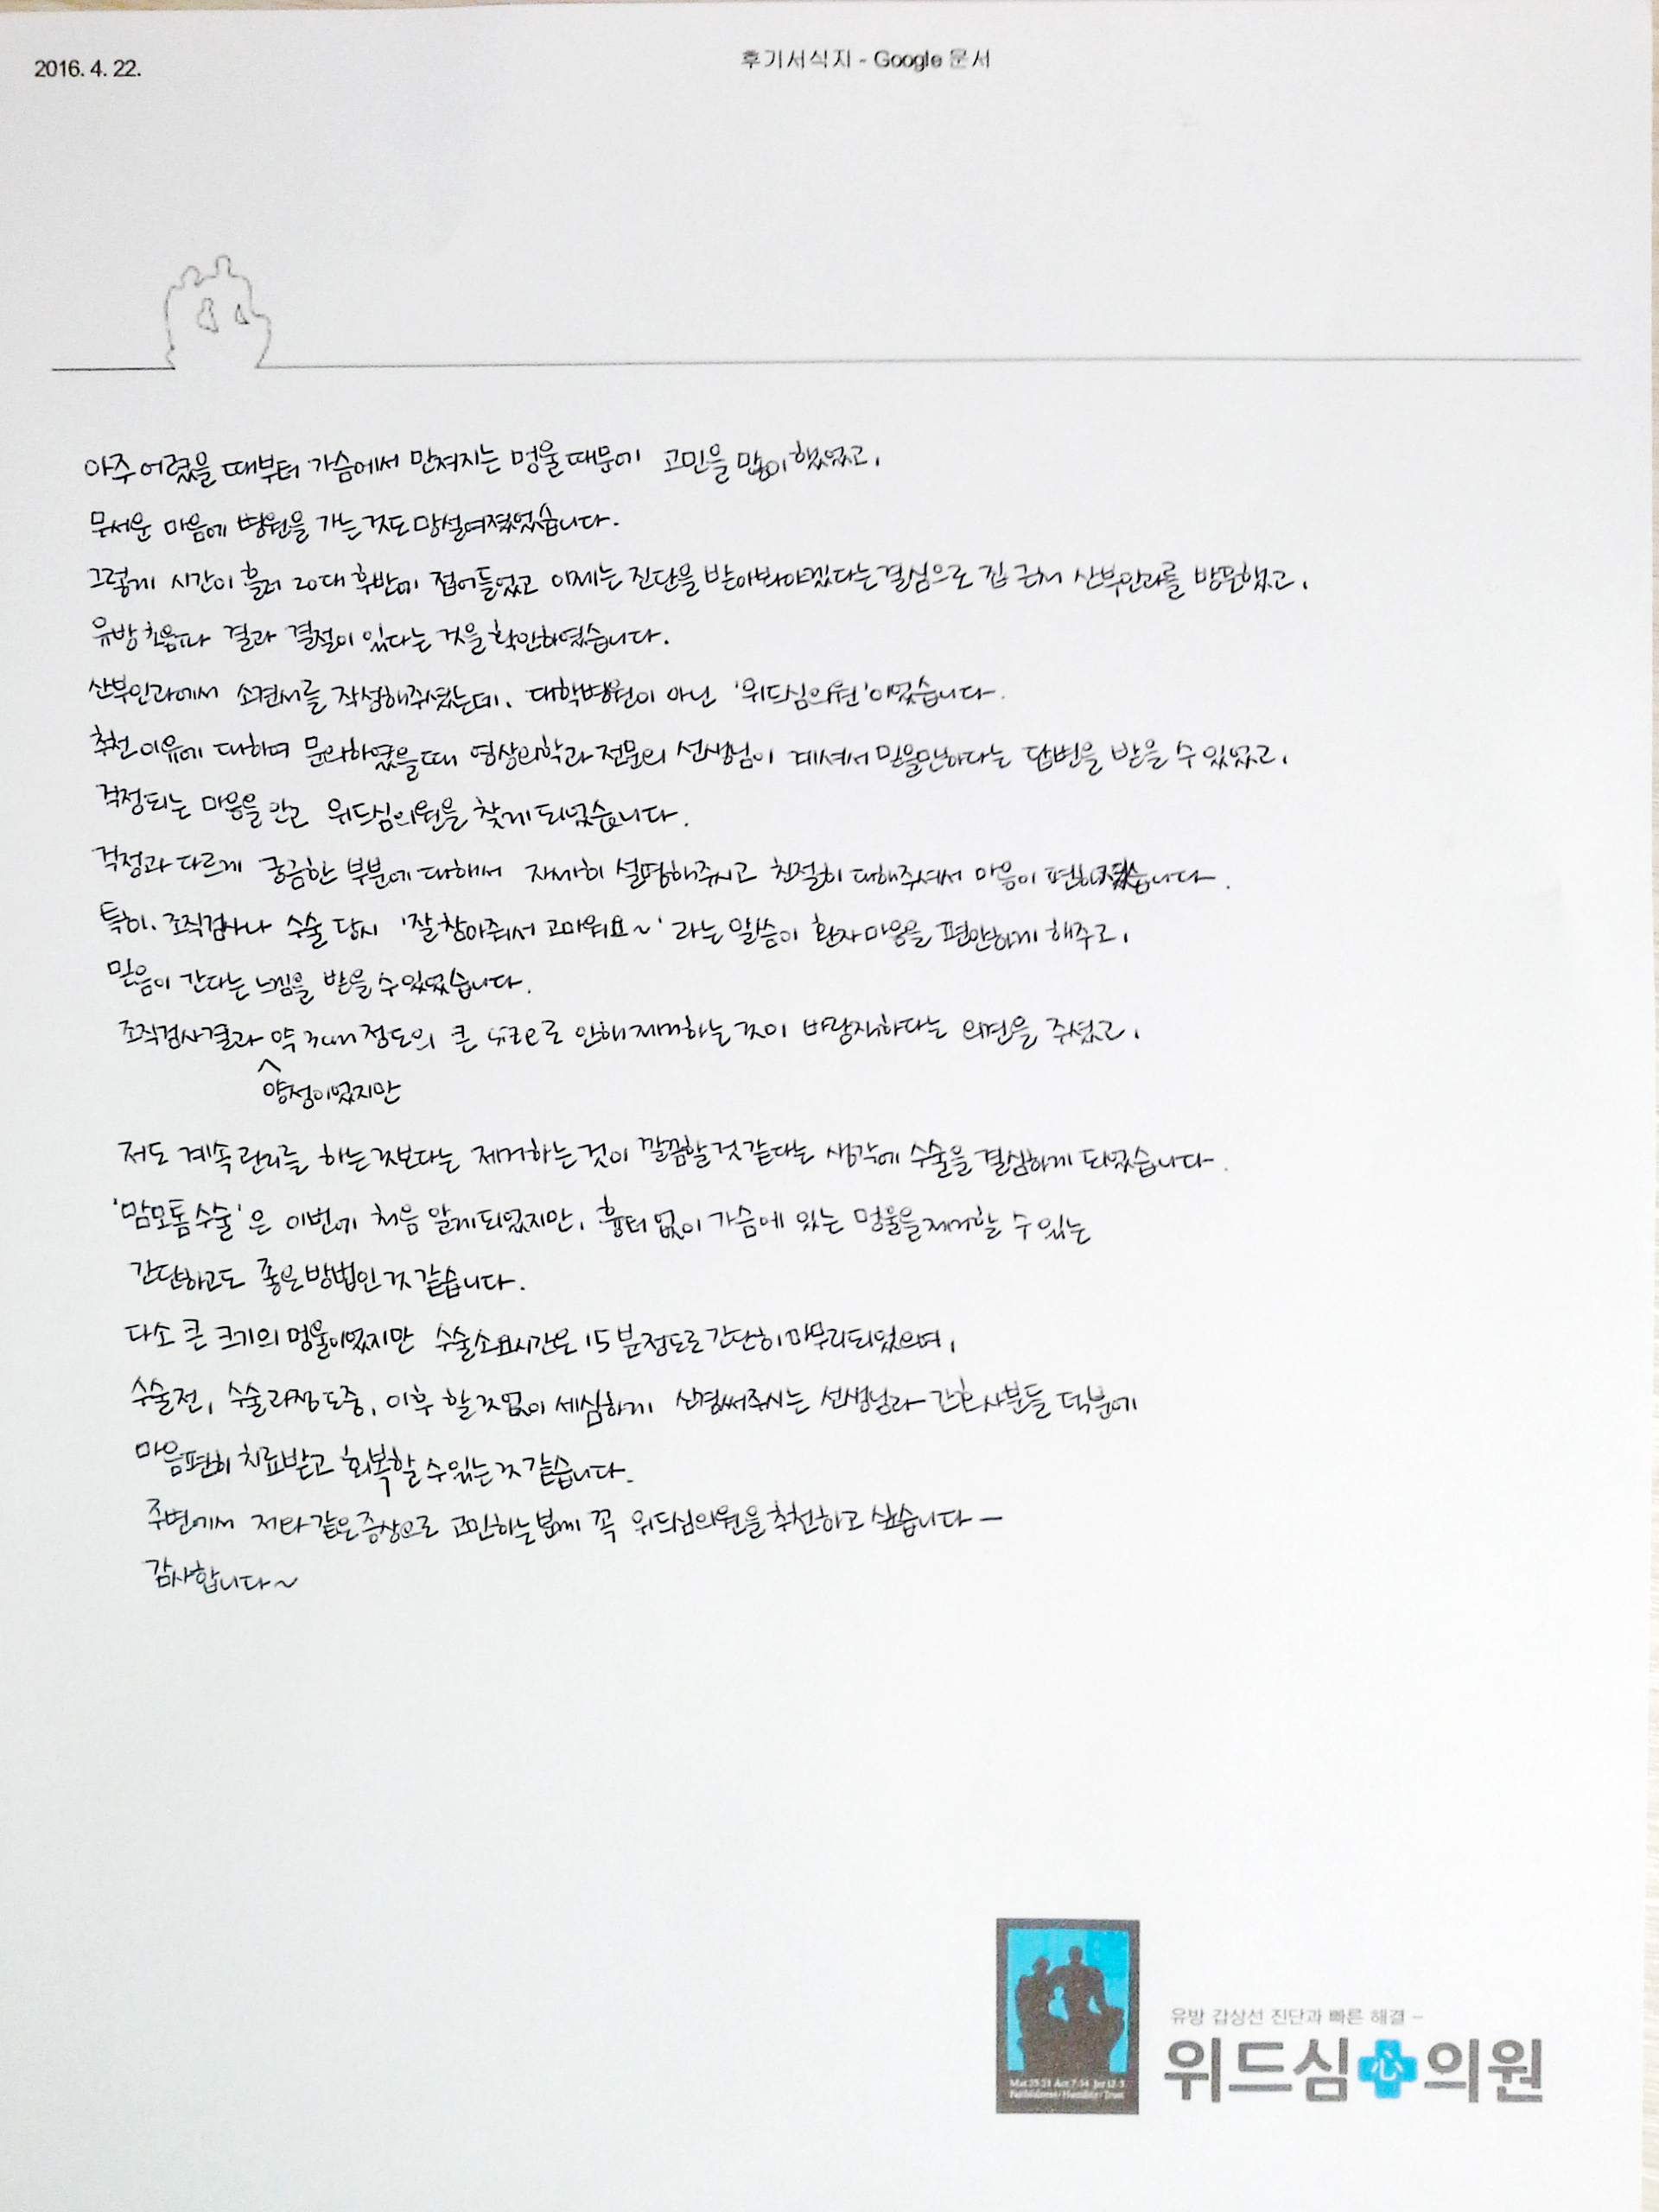 2016. 4. 22.
후기서식지 - Google 문서
아주 어렸을 때부터 가슴에서 만져지는 멍울때문에 고민을 많이 했었고,
무서운 마음에 병원을 가는 것도 망설여졌었습니다.
그렇게 시간이 흘러 20대 후반에 접어들었고 이제는 진단을 받아봐야겠다는 결심으로 집 근처 산부인과를 방문했고,
유방초음파 결과 결절이 있다는 것을 확인하였습니다.
산부인과에서 소견서를 작성해주셨는데, 대학병원이 아닌 '위드심의원'이었습니다.
추천이유에 대하여 문의하였을때 영상의학과 전문의 선생님이 계셔서 믿을만하다는 답변을 받을 수 있었고,
걱정되는 마음을 안고 위드심의원을 찾게 되었습니다.
걱정과 다르게 궁금한 부분에 대해서 자세히 설명해주시고 친절히 대해주셔서 마음이 편해졌습니다.
특히, 조직검사나 수술 당시 '잘 참아줘서 고마워요~' 라는 말씀이 환자 마음을 편안하게 해주고,
믿음이 간다는 느낌을 받을 수 있었습니다.
조직검사결과 약 3cm 정도의 큰 size로 인해 제거하는 것이 바람직하다는 의견을 주셨고,
양성이었지만
저도 계속 관리를 하는 것보다는 제거하는 것이 깔끔할 것 같다는 생각에 수술을 결심하게 되었습니다.
'맘모톰수술'은 이번에 처음 알게되었지만, 흉터 없이 가슴에 있는 멍울을 제거할 수 있는
간단하고도 좋은 방법인 것 같습니다.
다소 큰 크기의 멍울이었지만 수술소요시간은 15분정도로 간단히 마무리되었으며,
수술전, 수술과정 도중, 이후 할 것 없이 세심하게 신경써주시는 선생님과 간호사분들 덕분에
마음편히 치료받고 회복할 수 있는 것 같습니다.
주변에서 저와 같은 증상으로 고민하는 분께 꼭 위드심의원을 추천하고 싶습니다 —
감사합니다~
Mat 25:21 Act 7:34 Jer 12:3
Faithfulness/Humility/Trust
유방 갑상선 진단과 빠른 해결 -
위드심心의원